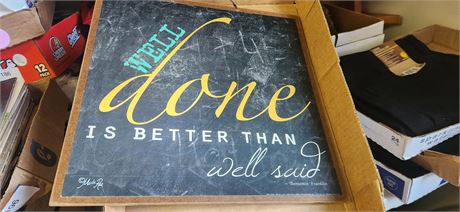 WELL
done
IS BETTER THAN
well said
- Benjamin Franklin
12
PACK
186
24